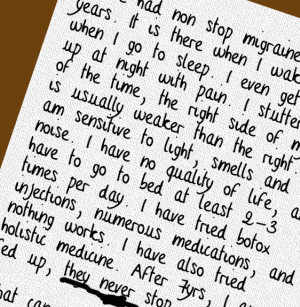 had non stop migraine
years. It is there when I wak
when I go to sleep. I even get
up at night with pain. I stutter
of the time, the right side of m
is usually weaker than the right.
am sensitive to light, smells and
noise. I have no quality of life, a
have to go to bed at least 2-3
times per day. I have tried botox
injections, numerous medications, and
nothing works. I have also tried
holistic medicine. After 7yrs,
ed up, they never stop